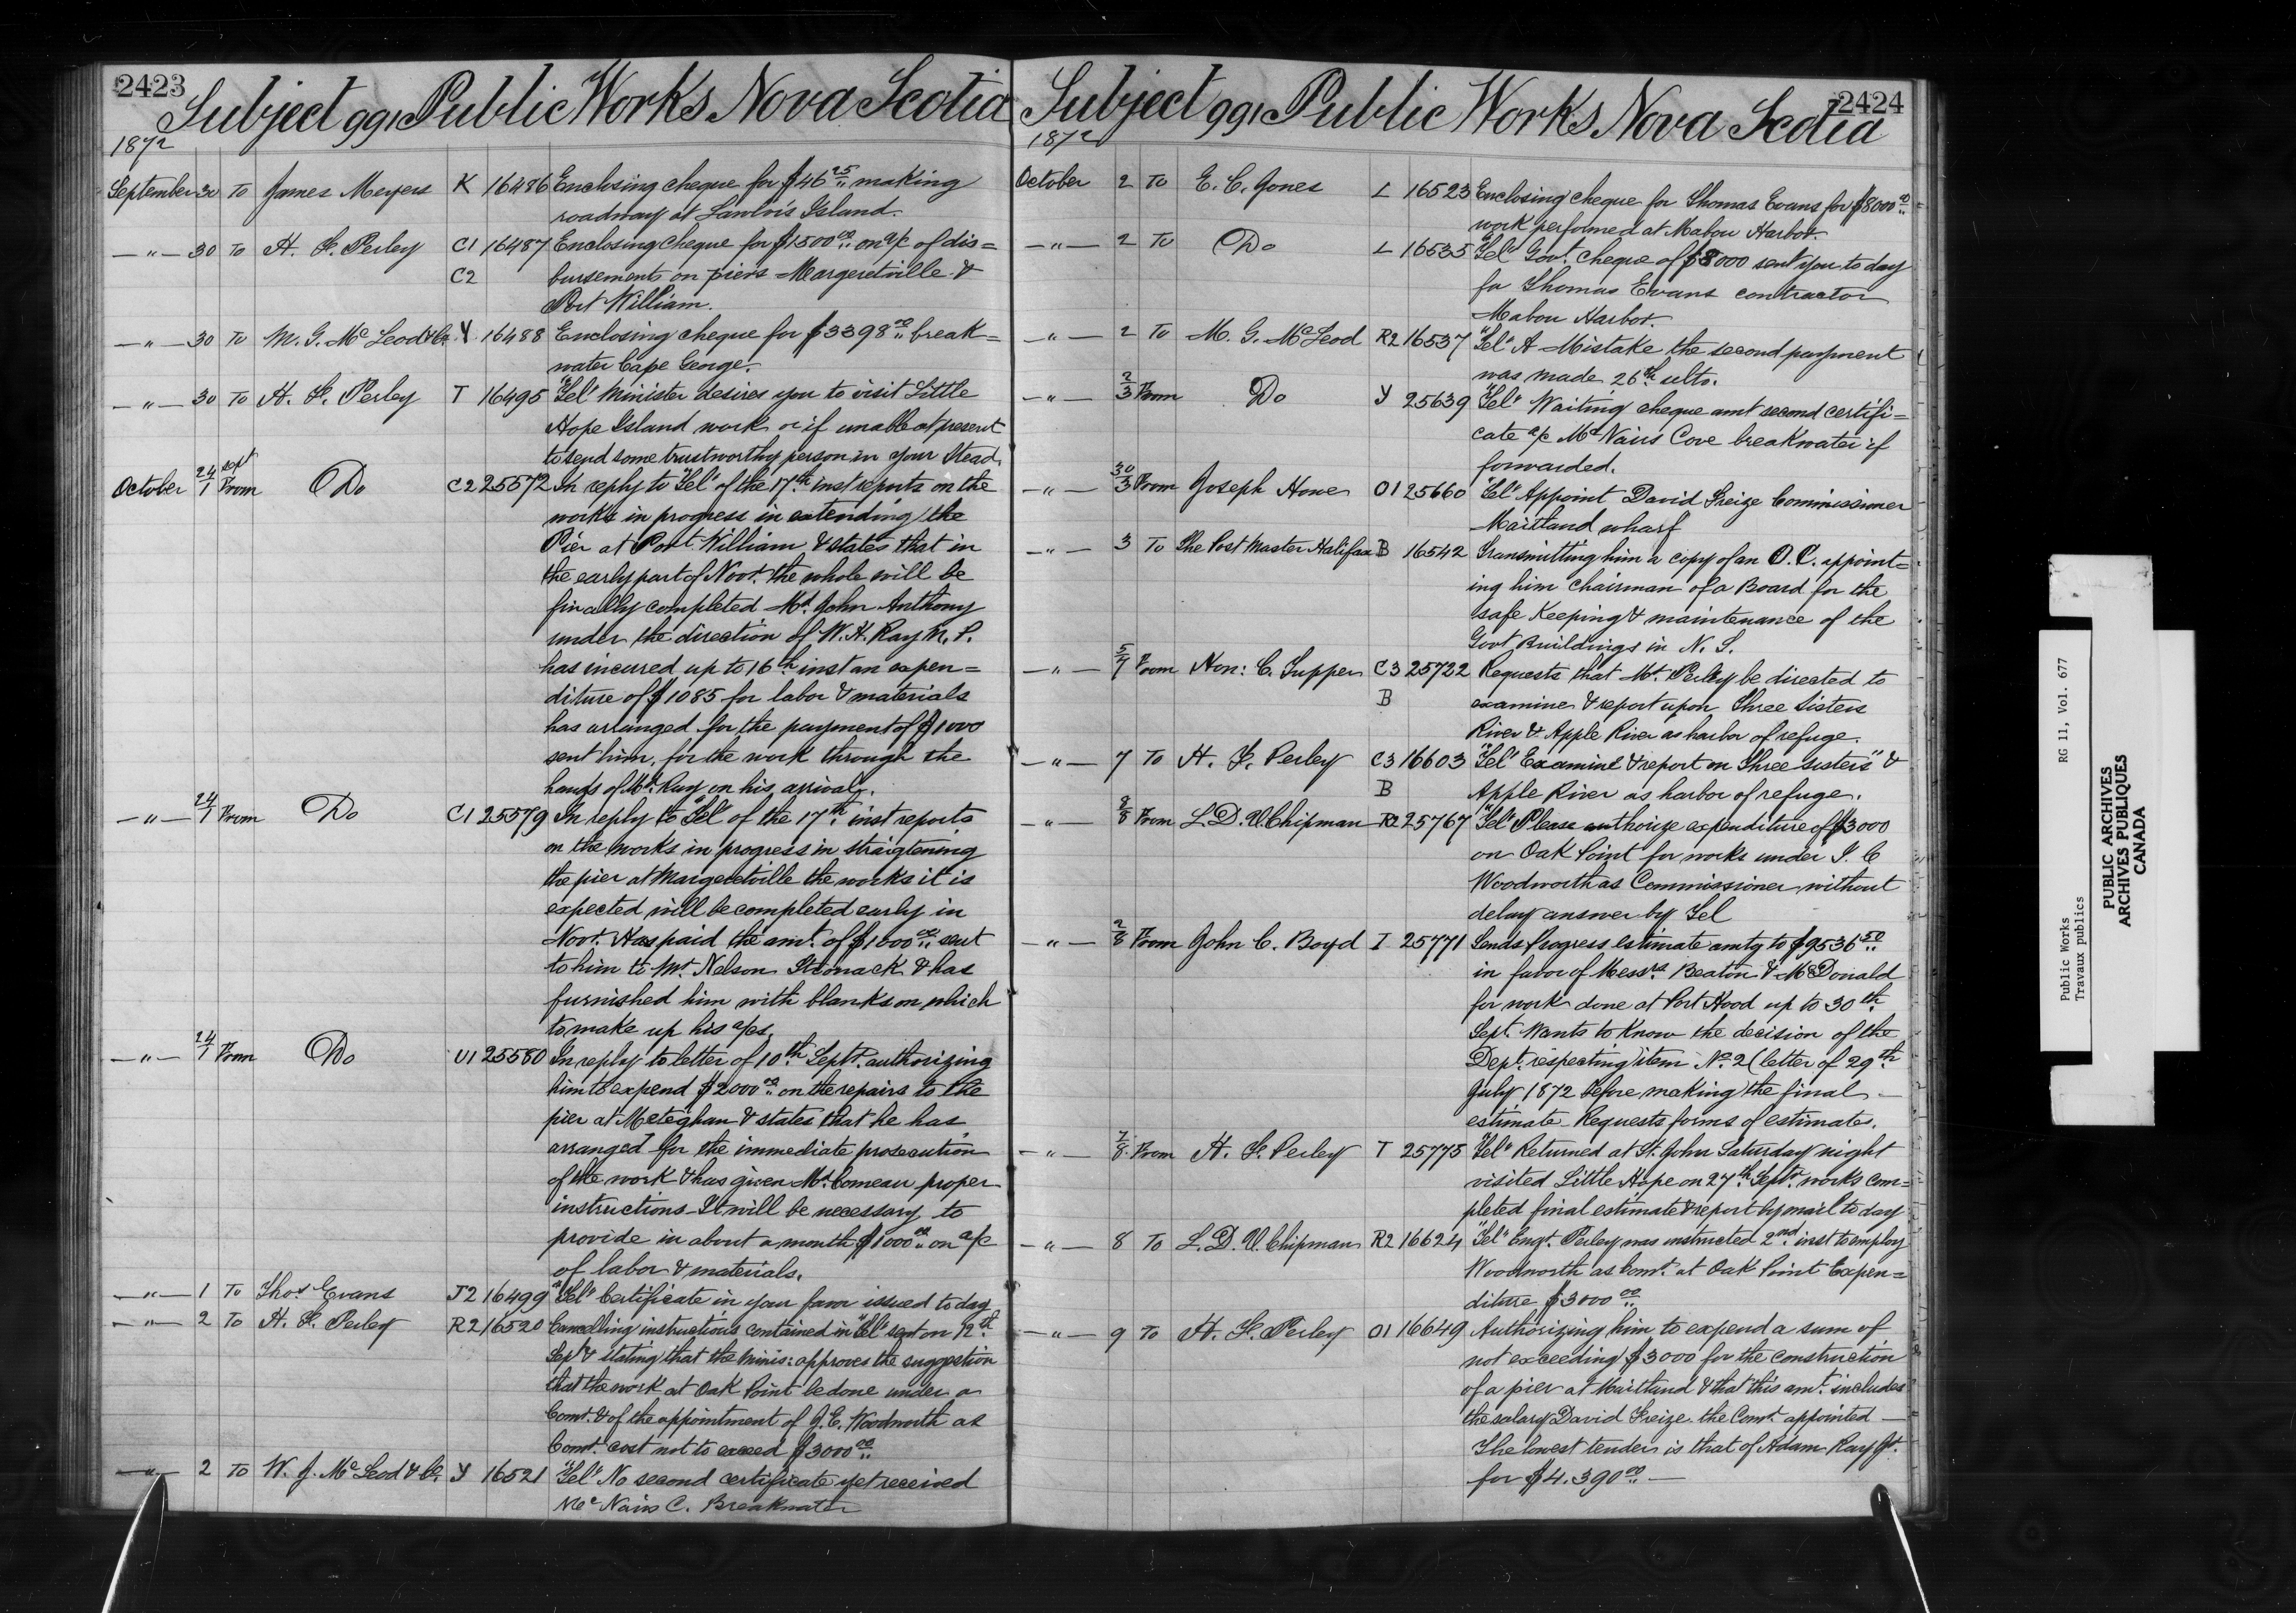 2423
Subject 991 Public Works Nova Scotia
1872
September 30 To James Meyers K 16486 Enclosing cheque for $46 25 making
roadway at Lawlor's Island.
—"— 30 To H. F. Perley C1 16487 Enclosing cheque for $1500 00 on a/c of dis=
C2 bursements on piers Margeretville &
Port William.
—"— 30 To M. G. Mc Leod & Co. Y 16488 Enclosing cheque for $3398 00 break=
water Cape George.
—"— 30 To H. F. Perley T 16495 "Tel" Minister desires you to visit Little
Hope Island work or if unable at present
to send some trustworthy person in your stead.
October 24/1 Sept From Do C2 25572 In reply to "Tel" of the 17th inst reports on the
works in progress in extending the
Pier at Port William & states that in
the early part of Novr. the whole will be
finally completed Mr. John Anthony
under the direction of W. H. Ray M. P.
has incured up to 16th inst an expen=
diture of $1085 for labor & materials
has arranged for the payment of $1000
sent him, for the work through the
hands of Mr. Ray on his arrival.
—"— 24/1 From Do C1 25579 In reply to "Tel" of the 17th. inst reports
on the works in progress in straigtening
the pier at Margeretville the works it is
expected will be completed early in
Novr. Has paid the amt. of $1000 00 sent
to him to Mr. Nelson Stronack & has
furnished him with blanks on which
to make up his a/cs.
—"— 24/1 From Do U1 25580 In reply to letter of 10th Septr. authorizing
him to expend $2000 00 on the repairs to the
pier at Meteghan & states that he has
arranged for the immediate prosecution
of the work & has given Mr. Comeau proper
instructions. It will be necessary to
provide in about a month $1000 00 on a/c
of labor & materials.
—"— 1 To Thos Evans J2 16499 "Tel" Certificate in your favor issued to day
—"— 2 To H. F. Perley R2 16520 Cancelling instructions contained in "Tel" sent on 12th.
Sept & stating that the Minis: approves the suggestion
that the work at Oak Point be done under a
Comr. & of the appointment of J. E. Woodworth as
Comr. cost not to exceed $3000 00
—"— 2 To W. J. Mc Leod & Co. Y 16521 "Tel" No second certificate yet received
Mc Nairs C. Breakwater
2424
Subject 991 Public Works Nova Scotia
1872
October 2 To E. C. Jones L 16523 Enclosing cheque for Thomas Evans for $8000 00
work performed at Mabou Harbor.
—"— 2 To Do L 16535 "Tel" Govt. cheque of $8000 sent you to day
for Thomas Evans contractor
Mabou Harbor.
—"— 2 To M. G. McLeod R2 16537 "Tel" A Mistake the second payment
was made 26th ulto.
—"— 2/3 From Do Y 25639 "Tel" Waiting cheque amt second certifi=
cate a/c Mc Nairs Cove breakwater if
forwarded.
—"— 30/3 From Joseph Howe O1 25660 "Tel" Appoint David Freize Commissioner
Maitland wharf
—"— 3 To The Post Master Halifax B 16542 Transmitting him a copy of an O. C. appoint=
ing him Chairman of a Board for the
safe Keeping & maintenance of the
Govt Buildings in N. S.
—"— 5/7 From Hon: C. Tupper C3 25722 Requests that Mr. Perley be directed to
B examine & report upon Three Sisters
River & Apple River as harbor of refuge.
—"— 7 To H. F. Perley C3 16603 "Tel" Examine & report on Three Sisters" &
B Apple River as harbor of refuge.
—"— 8/8 From L. D. V. Chipman R2 25767 "Tel" Please authorize expenditure of $3000
on Oak Point for works under J. E
Woodworth as Commissioner without
delay answer by Tel
—"— 2/8 From John C. Boyd I 25771 Sends Progress estimate amtg to $9536 50
in favor of Messrs Beaton & McDonald
for work done at Port Hood up to 30th
Sept. Wants to Know the decision of the
Dept. respecting item No. 2 (letter of 29th
July 1872 before making the final
estimate. Requests forms of estimates.
—"— 7/8 From H. F. Perley T 25775 "Tel" Returned at St. John Saturday night
visited Little Hope on 27th. Septr. works com=
pleted final estimate & report by mail to day
—"— 8 To L. D. V. Chipman R2 16624 "Tel" Engr. Perley was instructed 2nd. inst to employ
Woodworth as Comr. at Oak Point Expen=
diture $3000 00
—"— 9 To H. F. Perley O1 16649 Authorizing him to expend a sum of
not exceeding $3000 for the construction
of a pier at Maitland & that this amt. includes
the salary David Freize the Comr. appointed —
The lowest tender is that of Adam Roy Jr.
for $4,390 00 —
Public Works RG 11, Vol. 677
Travaux publics
PUBLIC ARCHIVES
ARCHIVES PUBLIQUES
CANADA